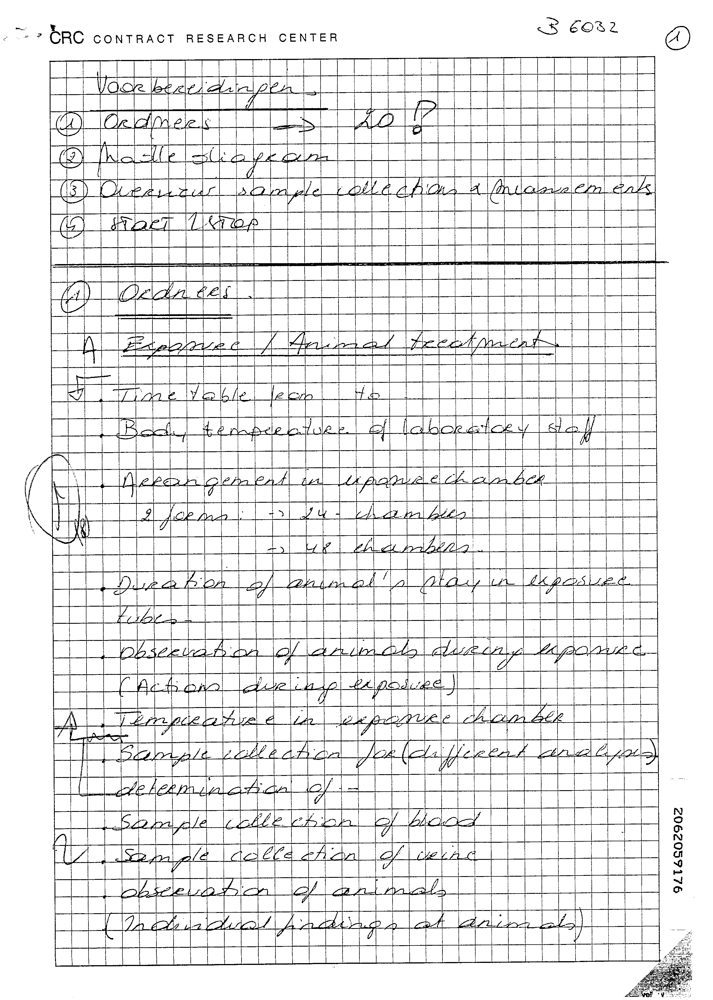 CRC CONTRACT RESEARCH CENTER
B 6032
1
Voorbereidingen.
1 Ordners → 20 ?
2 diagram
3 Overview sample collections & measurements
4 START / STOP
1 Ordners.
A Exposure / Animal treatment
. Time table from to
. Body temperature of laboratory staff
. Arrangement in exposure chamber
2 forms: → 24 - chambers
→ 48 chambers.
. Duration of animal's stay in exposure
tubes
. Observation of animals during exposure
(Actions during exposure)
. Temperature in exposure chamber
. Sample collection for (different analysis)
determination of -
. Sample collection of blood
. Sample collection of urine
. observation of animals
(Individual findings at animals)
2062059176